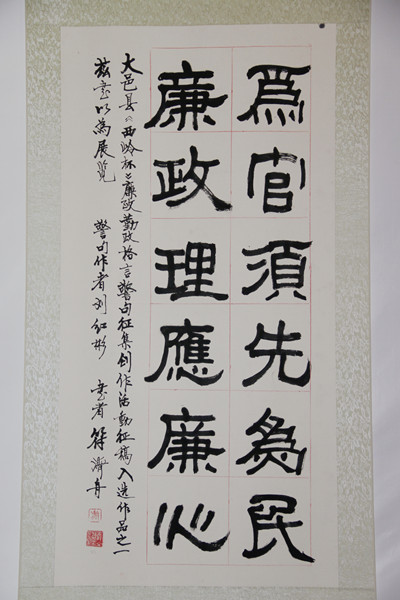 為官須先為民
廉政理應廉心
大邑县“西岭杯”廉政勤政格言警句征集创作活动征稿入选作品之一
兹书以为展览 警句作者刘红彬 书者 符济舟